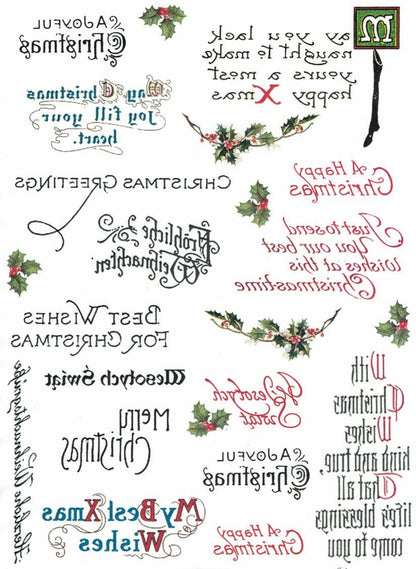 A JOYFUL
Christmas
May you lack
naught to make
yours a most
happy Xmas
May Christmas
joy fill your
heart.
CHRISTMAS GREETINGS
A Happy
Christmas
Fröhliche
Weihnachten
Just to send
You our best
wishes at this
Christmas-time
BEST WISHES
FOR CHRISTMAS
Wesołych Świąt
Wesołych
Świąt
Merry
Christmas
With
Christmas
Wishes
kind and true,
That all
life's blessings
come to you
A JOYFUL
Christmas
My Best Xmas
Wishes
A Happy
Christmas